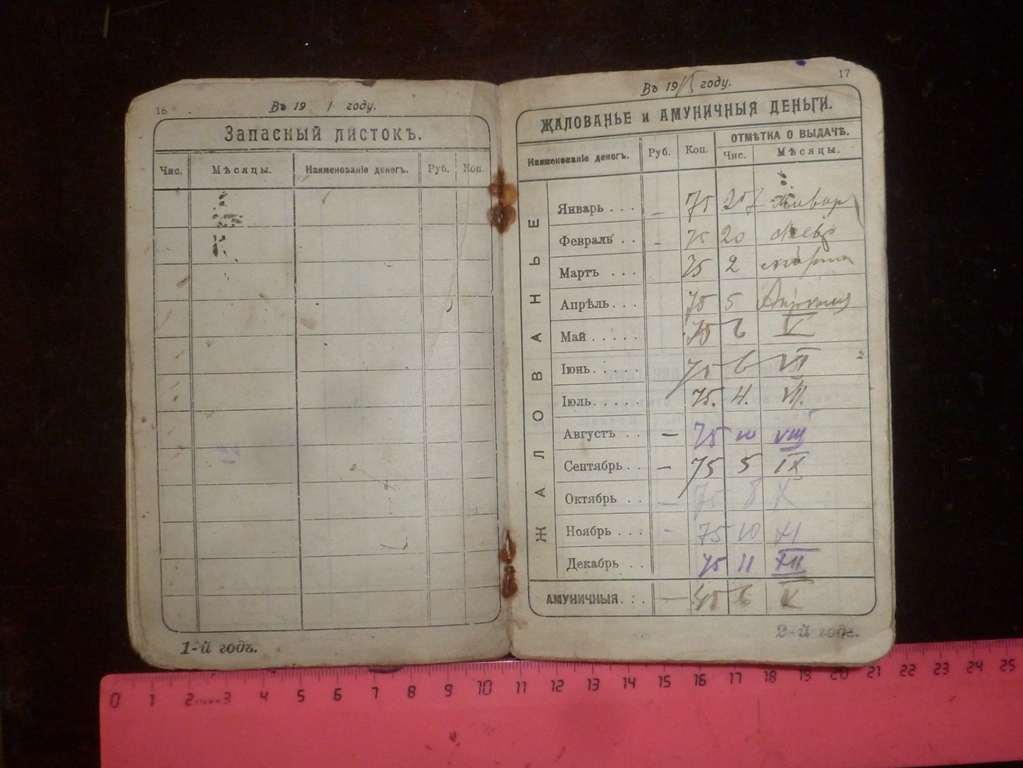 16
Въ 19 1 году.
Запасный листокъ.
Чис. Мѣсяцы. Наименованіе денегъ. Руб. Коп.
1-й годъ.
17
Въ 1915 году.
Жалованье и амуничныя деньги.
Наименованіе денегъ. Руб. Коп. Отмѣтка о выдачѣ.
Чис. Мѣсяцы.
ЖАЛОВАНЬЕ
Январь . . . – 75 20
Февраль . . – 75 20
Мартъ . . . 75 2 марта
Апрѣль . . . 75 5 Апрѣля
Май . . . . . 75 6 V
Іюнь . . . . . 75 6 VI
Іюль . . . . . 75. 4. VII.
Августъ . . – 75 10 VIII
Сентябрь . . – 75 5 IX
Октябрь . . – 75 8 X
Ноябрь . . . – 75 10 XI
Декабрь . . 75 11 XII
Амуничныя . . . – 45 6 V
2-й годъ.
0 1 2 3 4 5 6 7 8 9 10 11 12 13 14 15 16 17 18 19 20 21 22 23 24 25